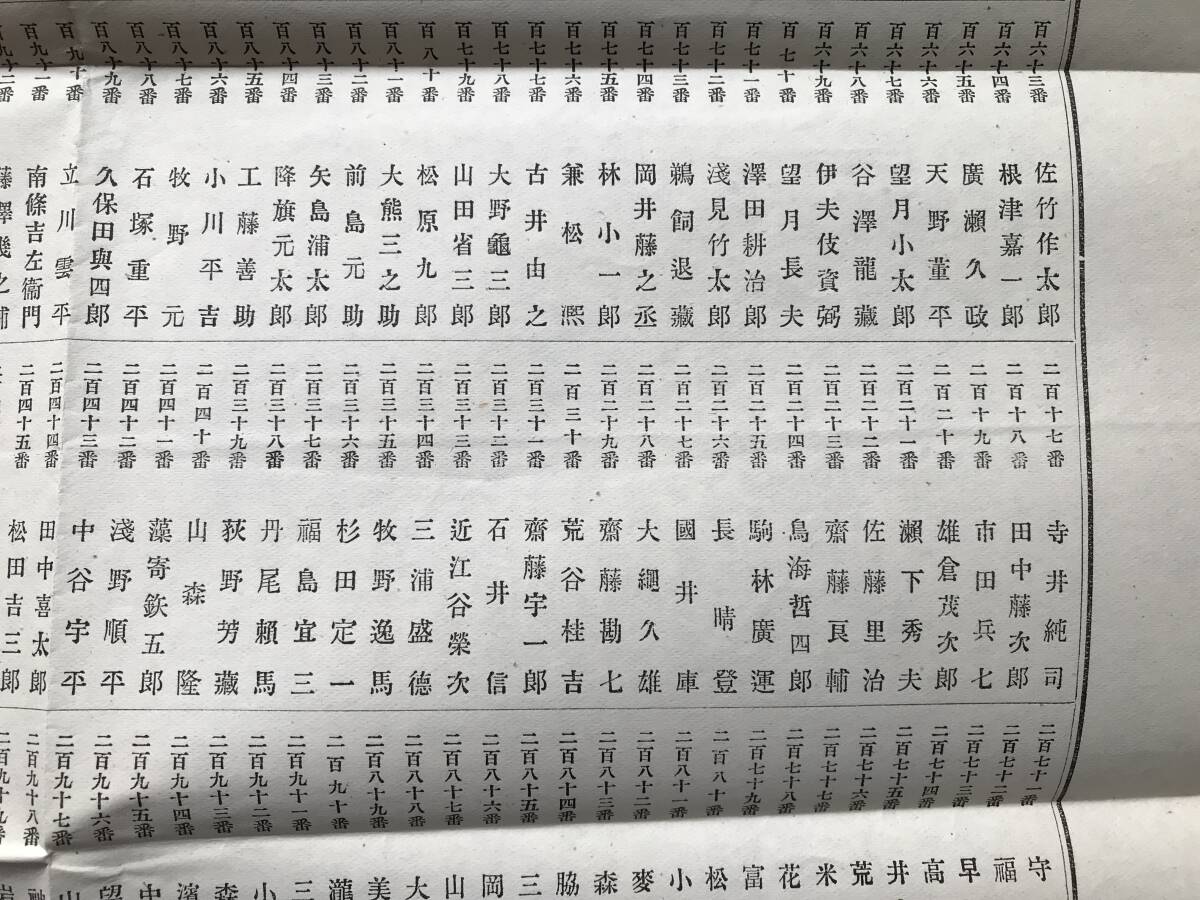 百六十三番 佐竹作太郎
百六十四番 根津嘉一郎
百六十五番 廣瀬久政
百六十六番 天野董平
百六十七番 望月小太郎
百六十八番 谷澤龍藏
百六十九番 伊夫伎資弼
百七十番 望月長夫
百七十一番 澤田耕治郎
百七十二番 淺見竹太郎
百七十三番 鵜飼退藏
百七十四番 岡井藤之丞
百七十五番 林小一郎
百七十六番 兼松凞
百七十七番 古井由之
百七十八番 大野龜三郎
百七十九番 山田省三郎
百八十番 松原九郎
百八十一番 大熊三之助
百八十二番 前島元助
百八十三番 矢島浦太郎
百八十四番 降旗元太郎
百八十五番 工藤善助
百八十六番 小川平吉
百八十七番 牧野元
百八十八番 石塚重平
百八十九番 久保田與四郎
百九十番 立川雲平
百九十一番 南條吉左衞門
百九十二番 藤澤幾之輔
二百十七番 寺井純司
二百十八番 田中藤次郎
二百十九番 市田兵七
二百二十番 雄倉茂次郎
二百二十一番 瀬下秀夫
二百二十二番 佐藤里治
二百二十三番 齋藤良輔
二百二十四番 鳥海哲四郎
二百二十五番 駒林廣運
二百二十六番 長晴登
二百二十七番 國井庫
二百二十八番 大繩久雄
二百二十九番 齋藤勘七
二百三十番 荒谷桂吉
二百三十一番 齋藤宇一郎
二百三十二番 石井信
二百三十三番 近江谷榮次
二百三十四番 三浦盛德
二百三十五番 牧野逸馬
二百三十六番 杉田定一
二百三十七番 福島宜三
二百三十八番 丹尾頼馬
二百三十九番 荻野芳藏
二百四十番 山森隆
二百四十一番 藻寄鉃五郎
二百四十二番 淺野順平
二百四十三番 中谷宇平
二百四十四番 田中喜太郎
二百四十五番 松田吉三郎
二百七十一番 守
二百七十二番 福
二百七十三番 早
二百七十四番 高
二百七十五番 井
二百七十六番 荒
二百七十七番 米
二百七十八番 花
二百七十九番 富
二百八十番 松
二百八十一番 小
二百八十二番 麥
二百八十三番 森
二百八十四番 脇
二百八十五番 三
二百八十六番 岡
二百八十七番 山
二百八十八番 大
二百八十九番 美
二百九十番 瀧
二百九十一番 三
二百九十二番 小
二百九十三番 森
二百九十四番 濱
二百九十五番 中
二百九十六番 望
二百九十七番 山
二百九十八番
二百九十九番